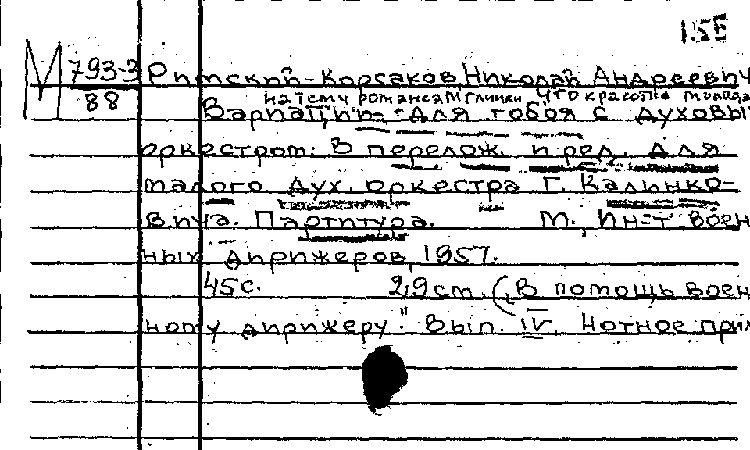 155
М 793-3 Римский-Корсаков, Николай Андреевич
88
на тему романса М. Глинки "Что красотка молодая
Вариации - для гобоя с духовы
оркестром. В перелож. и ред. для
малого дух. оркестра Г. Калинко-
вича. Партитура. М., Ин-т воен
ных дирижеров, 1957.
45с. 29 см. (В помощь воен
ному дирижеру". Вып. IV. Нотное при